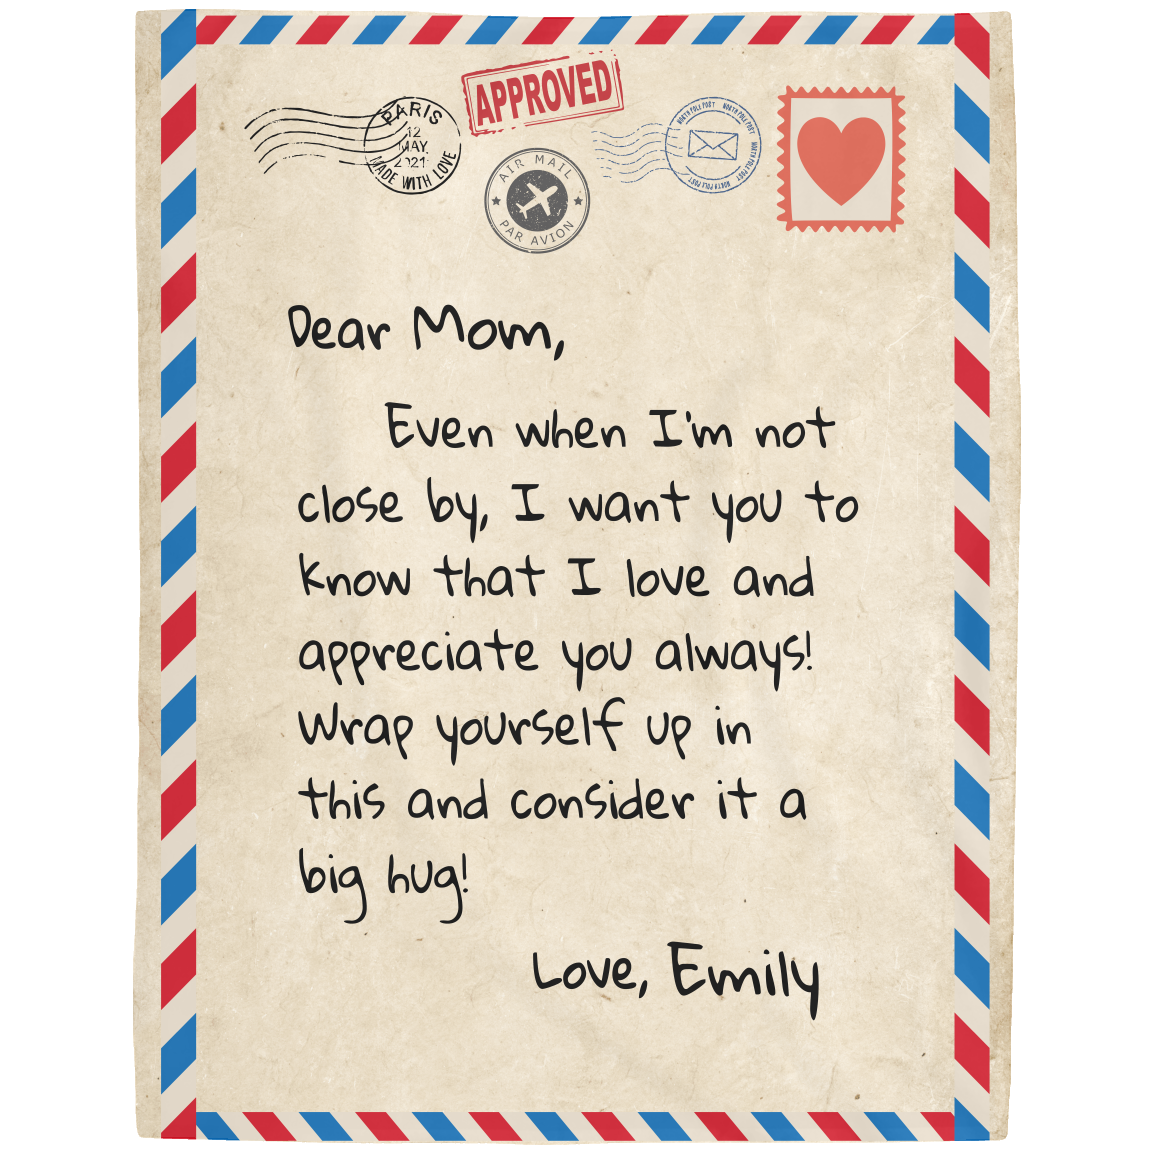 APPROVED
PARIS
12
MAY
2021
MADE WITH LOVE
AIR MAIL
PAR AVION
NORTH POLE POST NORTH POLE POST NORTH POLE POST NORTH POLE POST
Dear Mom,
Even when I'm not
close by, I want you to
know that I love and
appreciate you always!
Wrap yourself up in
this and consider it a
big hug!
Love, Emily